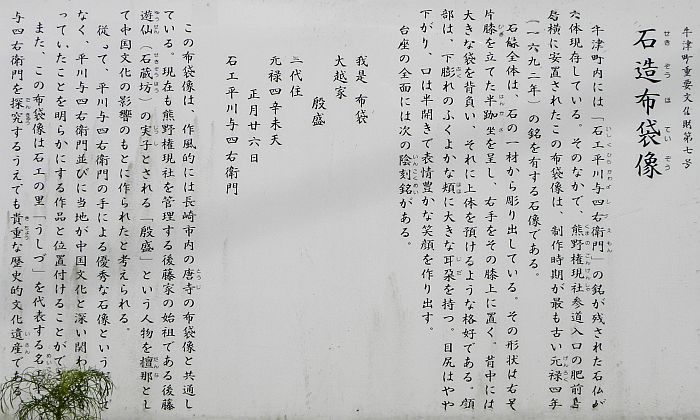 牛津町重要文化財第七号
石造布袋像
せきぞうほていぞう
牛津町内には「石工平川与四右衛門」の銘が残された石仏が
六体現存している。そのなかで、熊野権現社参道入口の肥前鳥
居横に安置されたこの布袋像は、制作時期が最も古い元禄四年
(一六九二年)の銘を有する石像である。
石像全体は、石の一材から彫り出している。その形状は右を
片膝を立てた半跏坐を呈し、右手をその膝上に置く。背中には
大きな袋を背負い、それに上体を預けるような格好である。顔
部は、下膨れのふくよかな頬に大きな耳朶を持つ。目尻はやや
下がり、口は半開きで表情豊かな笑顔を作り出す。
台座の全面には次の陰刻銘がある。
我是 布袋
大越家
殷盛
三代住
元禄四辛未天
正月廿六日
石工平川与四右衛門
この布袋像は、作風的には長崎市内の唐寺の布袋像と共通し
ている。現在も熊野権現社を管理する後藤家の始祖である後藤
遊仙(石蔵坊)の実子とされる「殷盛」という人物を檀那とし
て中国文化の影響のもとに作られたと考えられる。
従って、平川与四右衛門の手による優秀な石像という
なく、平川与四右衛門並びに当地が中国文化と深い関わ
っていたことを明らかにする作品と位置付けることがで
また、この布袋像は石工の里「うしづ」を代表する名
与四右衛門を探究するうえでも貴重な歴史的文化遺産である